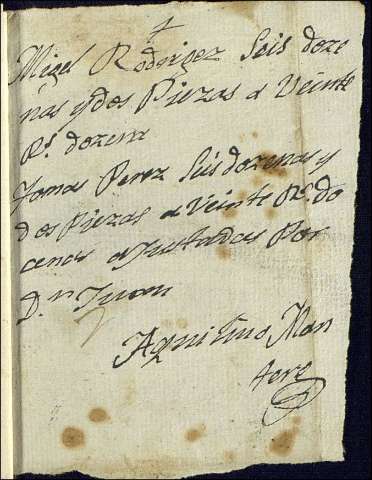 +
Migel Rodrigez Seis doze
nas y dos Piezas a Veinte
Rs. dozena
Tomas Perez Seis dozenas y
dos Piezas a Veinte Rs. do
cenas ajustadas Por
D.n Juan
Aquilino Man